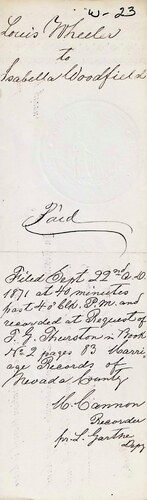 W-23
Louis Wheeler
to
Isabella Woodfield
Paid
Filed Sept 22nd A.D.
1871 at 40 minutes
past 4 O'clk. P.M. and
recorded at Request of
F. G. Thurston in Book
No 2 pages 83 Marri-
age Records of
Nevada County
H. Cannon
Recorder
pr. L. Garthe
Depy